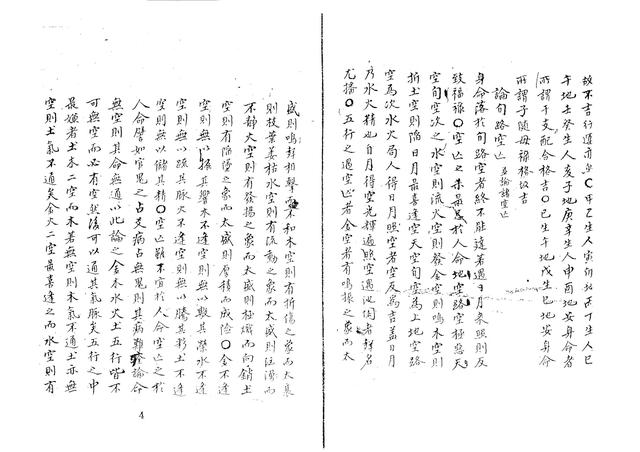 故不吉行遷亦然〇甲乙生人寅卯地丙丁生人巳
午地壬癸生人亥子地庚辛生人申酉地安身命者
所謂干支配合格吉〇己生午地戊生巳地安身命
所謂子隨母祿格故吉
論旬路空亡 五論諸空亡
身命落於旬路空者終不能達若遇日月來照則反
致福祿〇空亡之 最忌於人命地空路空極惡天
空旬空次之水空則流火空則發金空則鳴木空則
折土空則陷日月最喜逢空天空旬空為上地空路
空為次水火局人得日月照空者空反為吉蓋日月
乃水火精也日月得空光輝遍照空過 者 名
尤播〇五行之遇空亡者金空者有鳴振之象而太
盛則鳴 相擊而不和木空則有折傷之象而太衰
則枝葉萎枯水空則有流動之象而太盛則汪 而
不靜火空則有發揚之象而太盛則極熾而向銷土
空則有陷墜之象而太盛則層積而成險〇金不逢
空則無以振其響木不逢空則無以敷其榮水不逢
空則無以疏其脈火不逢空則無以騰其彩土不逢
空則無以儲其精〇空亡雖不宜於人命空亡之於
人命譬如官鬼之占爻病占無鬼則其病難 論命
無空則其命無通以此論之金木水火土五行皆不
可無空而必有空然後可以通其氣脈矣五行之中
最嫌者土木二空而木若無空則木氣不通土亦無
空則土氣不通矣金火二空最喜逢之而水空則有
4